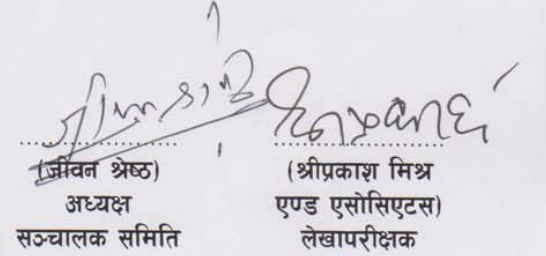 (जीवन श्रेष्ठ)
अध्यक्ष
सञ्चालक समिति
(श्रीप्रकाश मिश्र
एण्ड एसोसिएटस)
लेखापरीक्षक